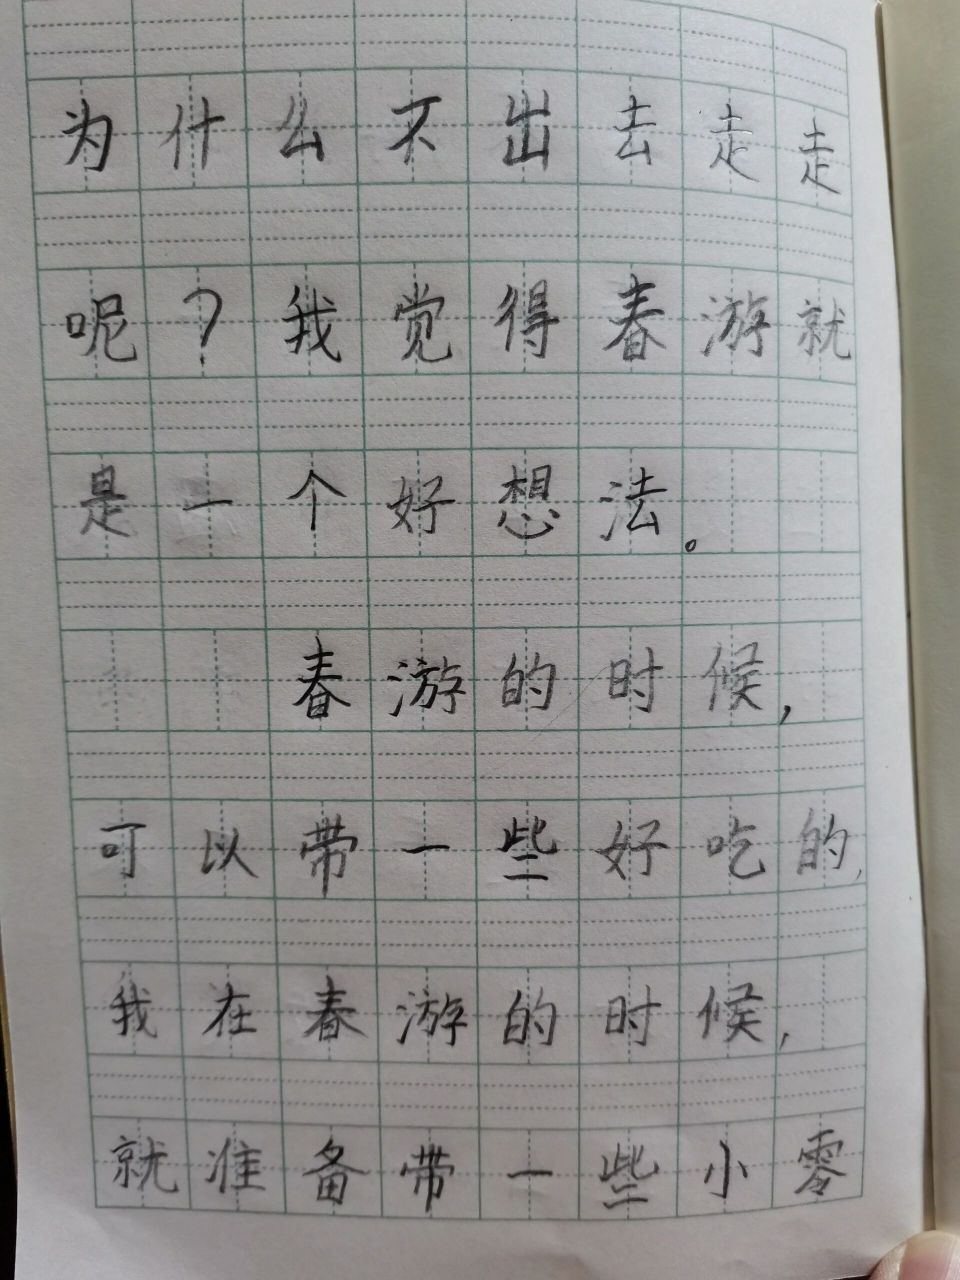 为什么不出去走走
呢？我觉得春游就
是一个好想法。
春游的时候，
可以带一些好吃的，
我在春游的时候，
就准备带一些小零